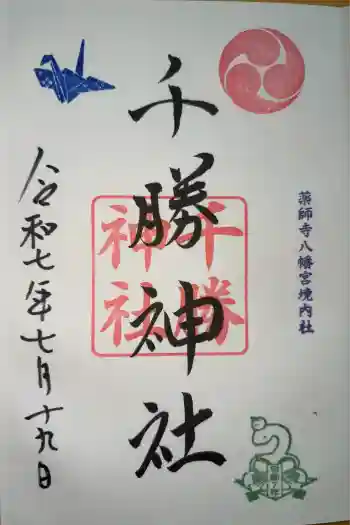 薬師寺八幡宮境内社
千勝神社
千勝
神社
令和七年七月十九日